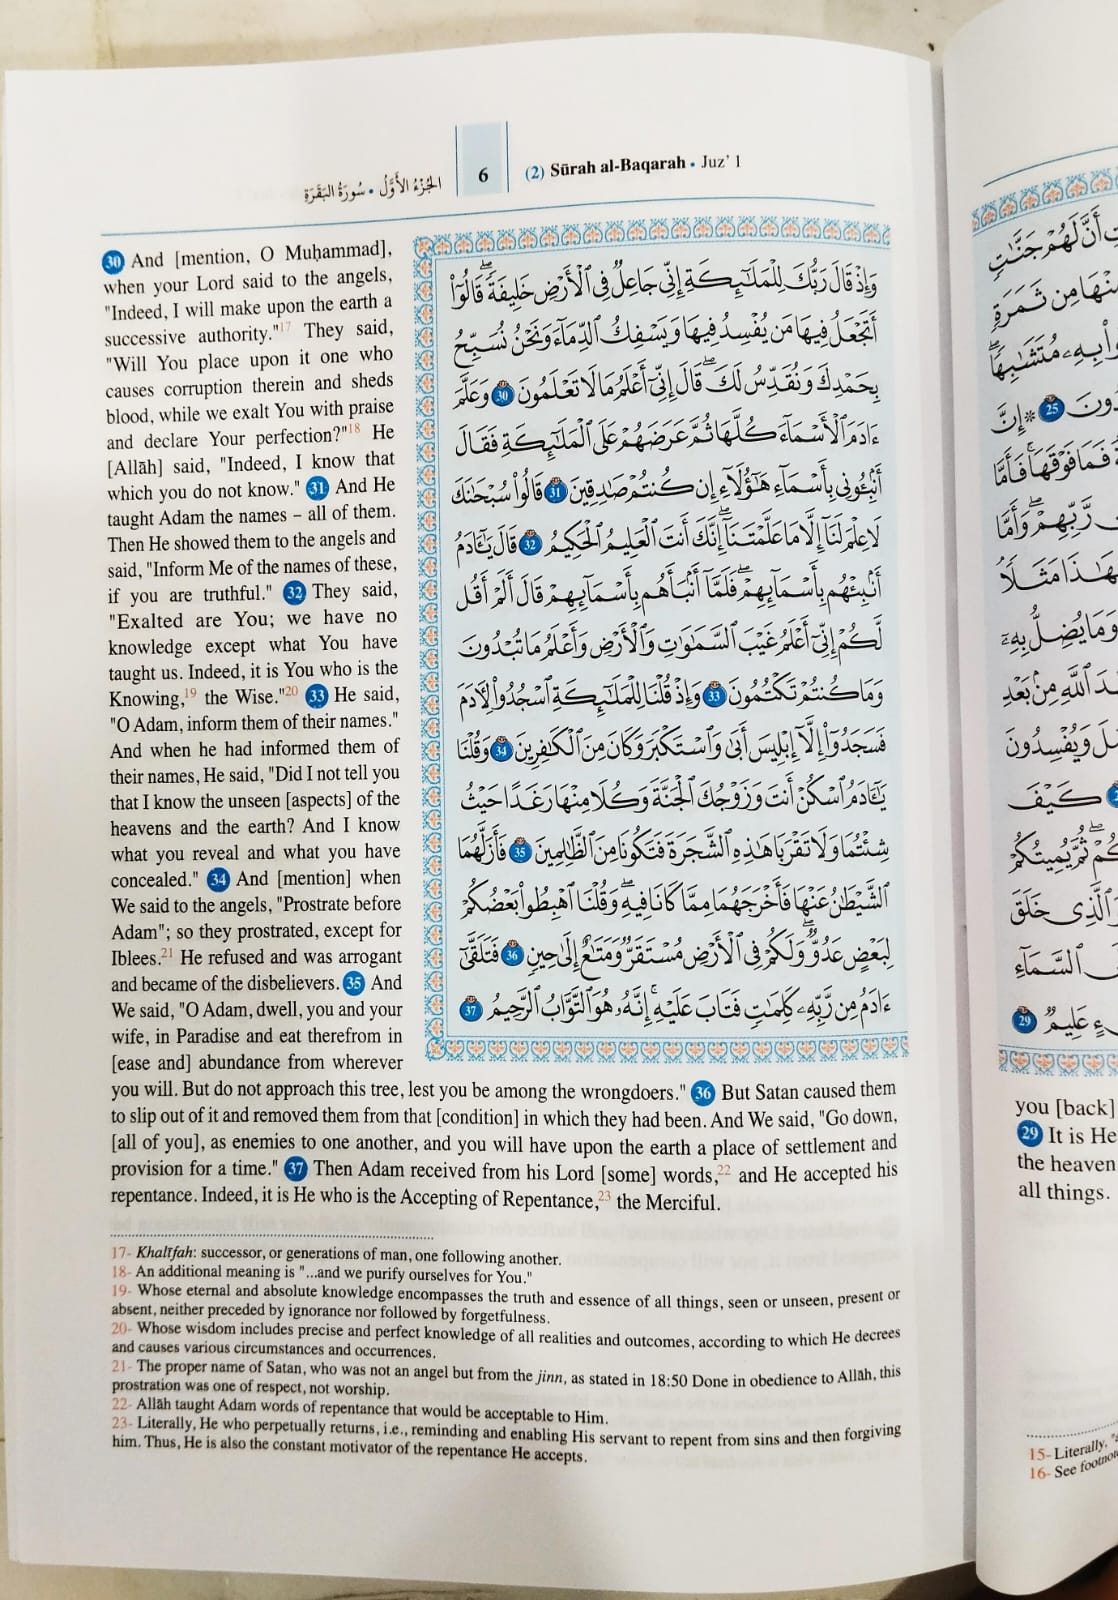 الجُزْءُ الأَوَّلُ • سُورَةُ البَقَرَةِ
6
(2) Sūrah al-Baqarah • Juz’ 1
30 And [mention, O Muḥammad],
when your Lord said to the angels,
"Indeed, I will make upon the earth a
successive authority."17 They said,
"Will You place upon it one who
causes corruption therein and sheds
blood, while we exalt You with praise
and declare Your perfection?"18 He
[Allāh] said, "Indeed, I know that
which you do not know." 31 And He
taught Adam the names – all of them.
Then He showed them to the angels and
said, "Inform Me of the names of these,
if you are truthful." 32 They said,
"Exalted are You; we have no
knowledge except what You have
taught us. Indeed, it is You who is the
Knowing,19 the Wise."20 33 He said,
"O Adam, inform them of their names."
And when he had informed them of
their names, He said, "Did I not tell you
that I know the unseen [aspects] of the
heavens and the earth? And I know
what you reveal and what you have
concealed." 34 And [mention] when
We said to the angels, "Prostrate before
Adam"; so they prostrated, except for
Iblees.21 He refused and was arrogant
and became of the disbelievers. 35 And
We said, "O Adam, dwell, you and your
wife, in Paradise and eat therefrom in
[ease and] abundance from wherever
you will. But do not approach this tree, lest you be among the wrongdoers." 36 But Satan caused them
to slip out of it and removed them from that [condition] in which they had been. And We said, "Go down,
[all of you], as enemies to one another, and you will have upon the earth a place of settlement and
provision for a time." 37 Then Adam received from his Lord [some] words,22 and He accepted his
repentance. Indeed, it is He who is the Accepting of Repentance,23 the Merciful.
وَإِذْ قَالَ رَبُّكَ لِلْمَلَٰٓئِكَةِ إِنِّي جَاعِلٌ فِي ٱلْأَرْضِ خَلِيفَةًۖ قَالُوٓا۟
أَتَجْعَلُ فِيهَا مَن يُفْسِدُ فِيهَا وَيَسْفِكُ ٱلدِّمَآءَ وَنَحْنُ نُسَبِّحُ
بِحَمْدِكَ وَنُقَدِّسُ لَكَۖ قَالَ إِنِّيٓ أَعْلَمُ مَا لَا تَعْلَمُونَ 30 وَعَلَّمَ
ءَادَمَ ٱلْأَسْمَآءَ كُلَّهَا ثُمَّ عَرَضَهُمْ عَلَى ٱلْمَلَٰٓئِكَةِ فَقَالَ
أَنۢبِـُٔونِي بِأَسْمَآءِ هَٰٓؤُلَآءِ إِن كُنتُمْ صَٰدِقِينَ 31 قَالُوا۟ سُبْحَٰنَكَ
لَا عِلْمَ لَنَآ إِلَّا مَا عَلَّمْتَنَآۖ إِنَّكَ أَنتَ ٱلْعَلِيمُ ٱلْحَكِيمُ 32 قَالَ يَٰٓـَٔادَمُ
أَنۢبِئْهُم بِأَسْمَآئِهِمْۖ فَلَمَّآ أَنۢبَأَهُم بِأَسْمَآئِهِمْ قَالَ أَلَمْ أَقُل
لَّكُمْ إِنِّيٓ أَعْلَمُ غَيْبَ ٱلسَّمَٰوَٰتِ وَٱلْأَرْضِ وَأَعْلَمُ مَا تُبْدُونَ
وَمَا كُنتُمْ تَكْتُمُونَ 33 وَإِذْ قُلْنَا لِلْمَلَٰٓئِكَةِ ٱسْجُدُوا۟ لِءَادَمَ
فَسَجَدُوٓا۟ إِلَّآ إِبْلِيسَ أَبَىٰ وَٱسْتَكْبَرَ وَكَانَ مِنَ ٱلْكَٰفِرِينَ 34 وَقُلْنَا
يَٰٓـَٔادَمُ ٱسْكُنْ أَنتَ وَزَوْجُكَ ٱلْجَنَّةَ وَكُلَا مِنْهَا رَغَدًا حَيْثُ
شِئْتُمَا وَلَا تَقْرَبَا هَٰذِهِ ٱلشَّجَرَةَ فَتَكُونَا مِنَ ٱلظَّٰلِمِينَ 35 فَأَزَلَّهُمَا
ٱلشَّيْطَٰنُ عَنْهَا فَأَخْرَجَهُمَا مِمَّا كَانَا فِيهِۖ وَقُلْنَا ٱهْبِطُوا۟ بَعْضُكُمْ
لِبَعْضٍ عَدُوٌّۖ وَلَكُمْ فِي ٱلْأَرْضِ مُسْتَقَرٌّ وَمَتَٰعٌ إِلَىٰ حِينٍ 36 فَتَلَقَّىٰٓ
ءَادَمُ مِن رَّبِّهِۦ كَلِمَٰتٍ فَتَابَ عَلَيْهِۚ إِنَّهُۥ هُوَ ٱلتَّوَّابُ ٱلرَّحِيمُ 37
17- Khalīfah: successor, or generations of man, one following another.
18- An additional meaning is "...and we purify ourselves for You."
19- Whose eternal and absolute knowledge encompasses the truth and essence of all things, seen or unseen, present or
absent, neither preceded by ignorance nor followed by forgetfulness.
20- Whose wisdom includes precise and perfect knowledge of all realities and outcomes, according to which He decrees
and causes various circumstances and occurrences.
21- The proper name of Satan, who was not an angel but from the jinn, as stated in 18:50 Done in obedience to Allāh, this
prostration was one of respect, not worship.
22- Allāh taught Adam words of repentance that would be acceptable to Him.
23- Literally, He who perpetually returns, i.e., reminding and enabling His servant to repent from sins and then forgiving
him. Thus, He is also the constant motivator of the repentance He accepts.
أَنَّ لَهُمْ جَنَّٰتٍ
مِنْهَا مِن ثَمَرَةٍ
بِهِۦ مُتَشَٰبِهًاۖ
25 ۞ إِنَّ
فَمَا فَوْقَهَاۚ فَأَمَّا
رَّبِّهِمْۖ وَأَمَّا
بِهَٰذَا مَثَلًاۘ
وَمَا يُضِلُّ بِهِۦٓ
ٱللَّهِ مِنۢ بَعْدِ
وَيُفْسِدُونَ
كَيْفَ
ثُمَّ يُمِيتُكُمْ
ٱلَّذِي خَلَقَ
ٱلسَّمَآءِ
عَلِيمٌ 29
you [back]
29 It is He
the heaven
all things.
15- Literally,
16- See